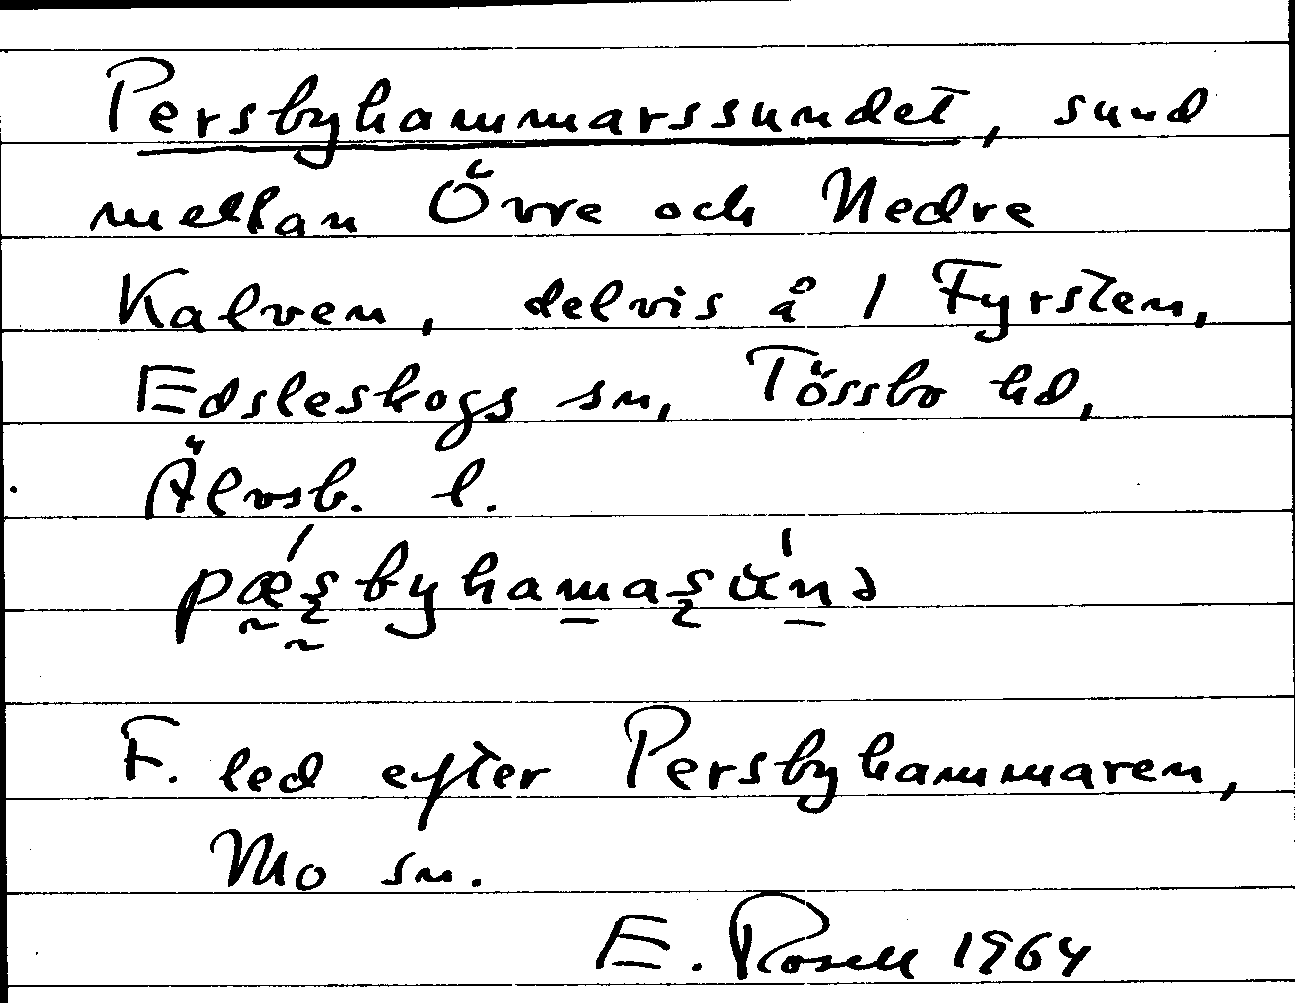 Persbyhammarssundet, sund
mellan Övre och Nedre
Kalven, delvis å / Fyrsten,
Edsleskogs sn, Tössbo hd,
Älvsb. l.
pǽ̰ʂbyhama̠ʂu̇́nə
F. led efter Persbyhammaren,
Mo sn.
E. Rosell 1964